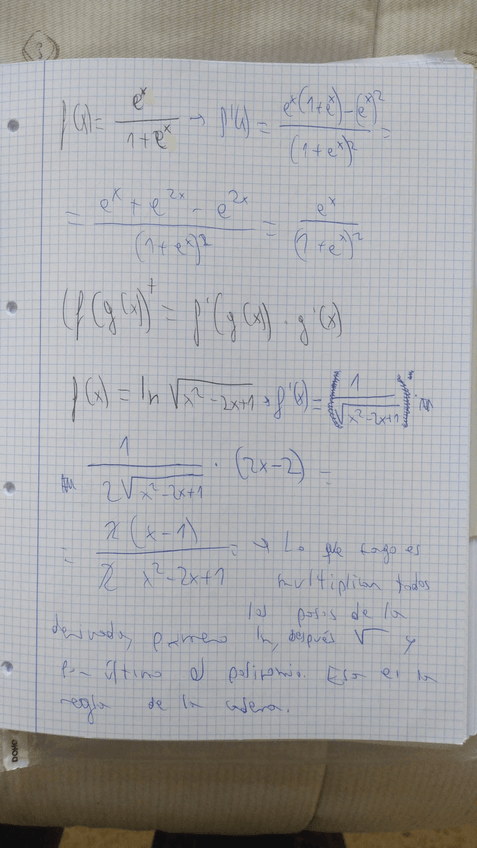 3
f(x) = e^x / (1+e^x) → f'(x) = (e^x(1+e^x) - (e^x)^2) / (1+e^x)^2 =
= (e^x + e^2x - e^2x) / (1+e^x)^2 = e^x / (1+e^x)^2
(f(g(x))' = f'(g(x)) · g'(x)
f(x) = ln √(x^2-2x+1) → f'(x) = 1 / √(x^2-2x+1) ·
1 / 2√(x^2-2x+1) · (2x-2) =
= 2(x-1) / 2 x^2-2x+1 = → Lo que hago es
multiplicar todos
los pasos de la
derivada, primero ln, después √ y
por último el polinomio. Esa es la
regla de la cadena.